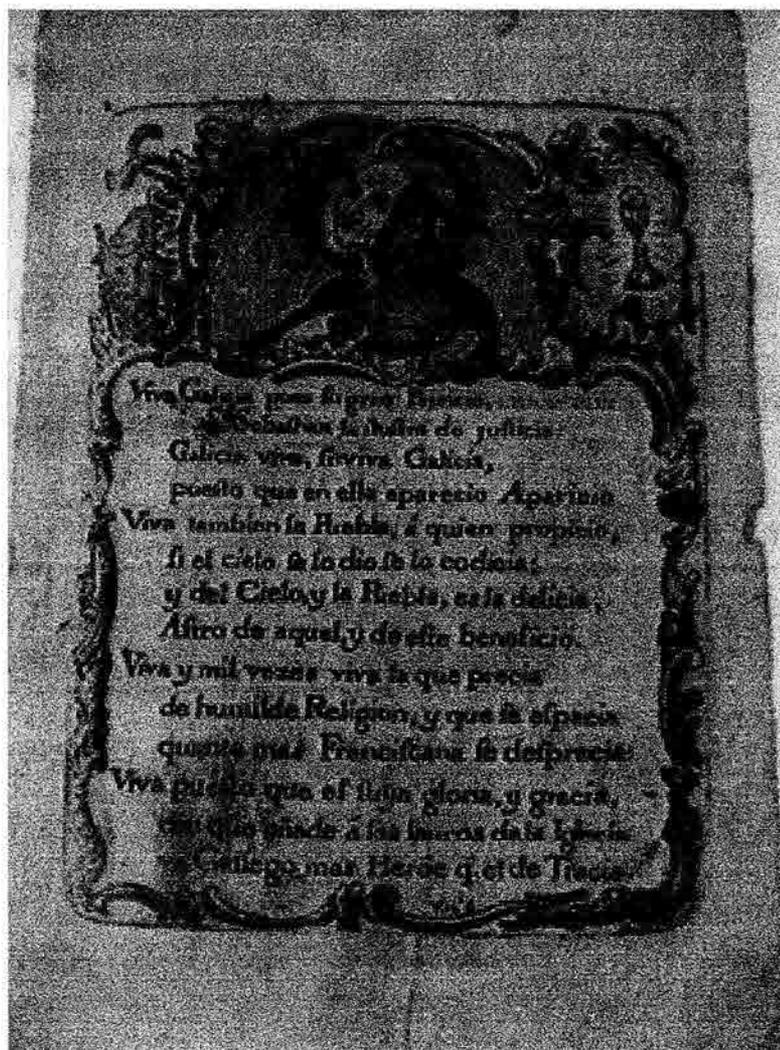 Viva Galicia pues su gran
de justicia
Galicia viva, si viva Galicia,
puesto que en ella aparecio Aparicio
Viva tambien la Puebla, á quien propicio,
si el cielo se lo dio, se lo codicia;
y del Cielo, y la Puebla, es la delicia,
Astro de aquel, y de este beneficio.
Viva y mil vezes viva la que precia
de humilde Religion, y que se espacia
quanto mas Franciscana se desprecia
Viva puesto que es suya gloria, y gracia,
que añade á los heroes de la Iglesia
Gallego, mas Heroe q. el de Tracia.